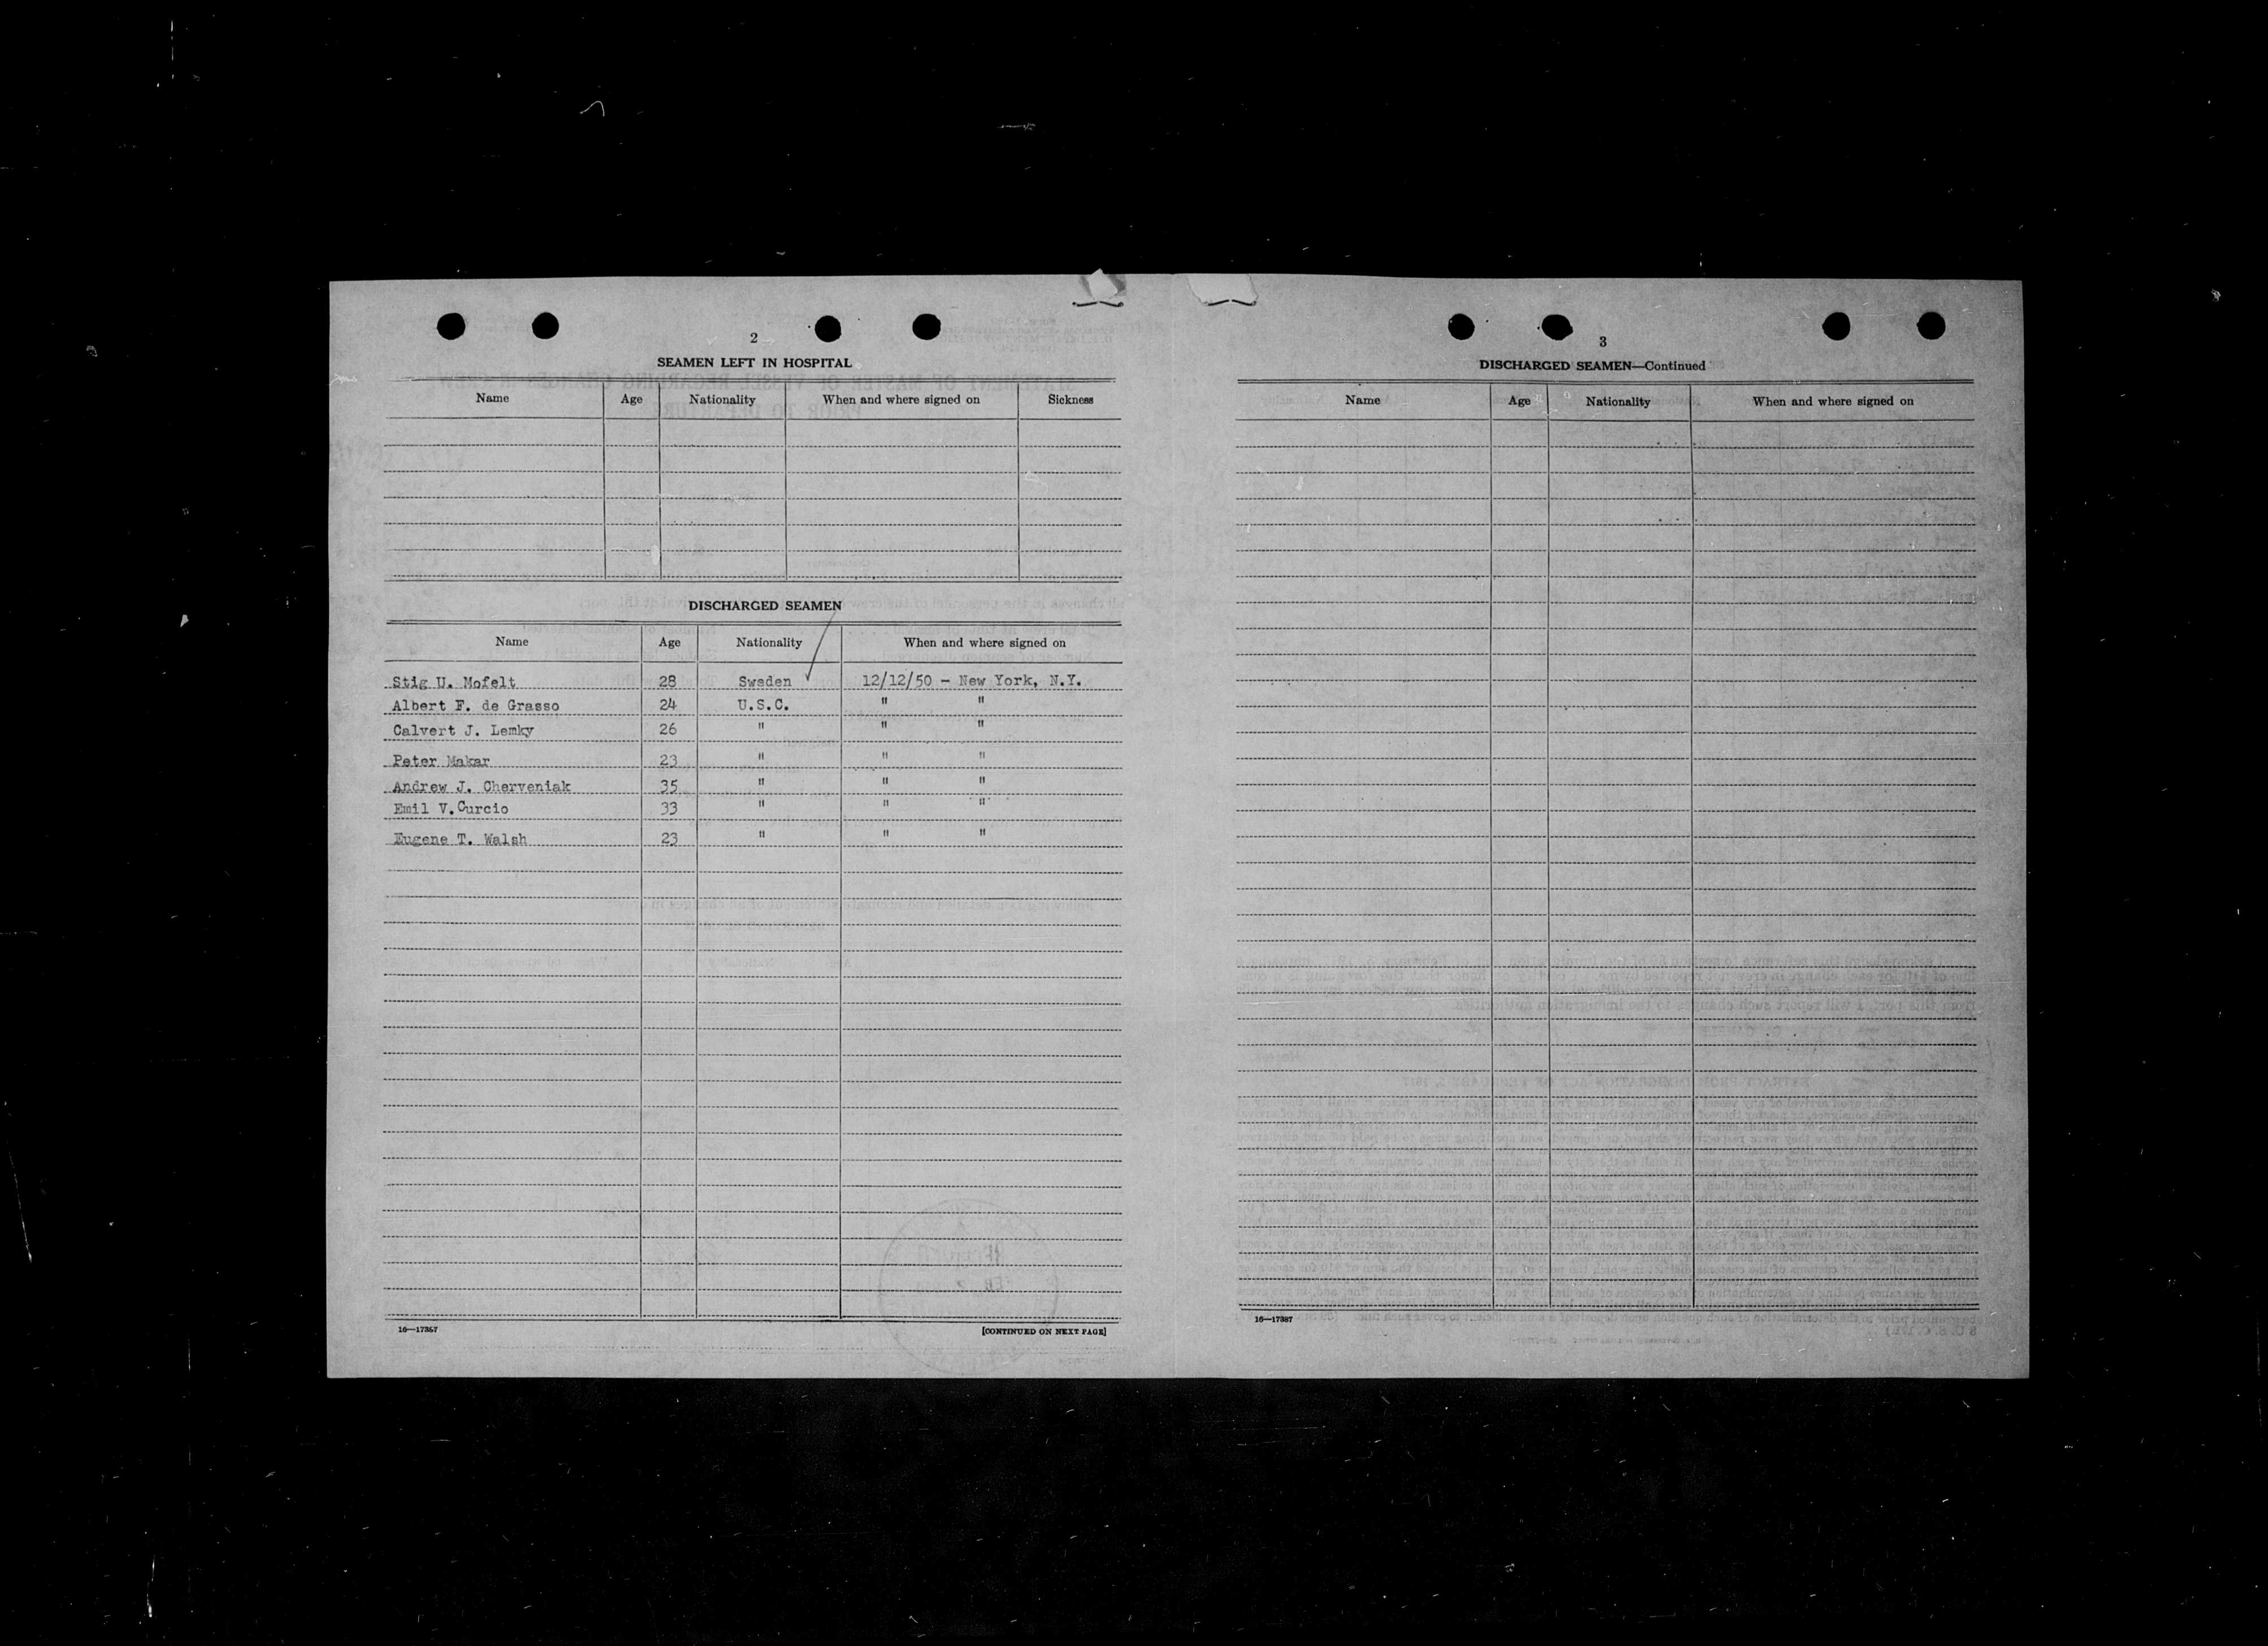 2
SEAMEN LEFT IN HOSPITAL
Name Age Nationality When and where signed on Sickness
DISCHARGED SEAMEN
Name Age Nationality When and where signed on
Stig U. Mofelt 28 Sweden 12/12/50 - New York, N.Y.
Albert F. de Grasso 24 U.S.C. " "
Calvert J. Lemky 26 " " "
Peter Makar 23 " " "
Andrew J. Cherveniak 35 " " "
Emil V. Curcio 33 " " "
Eugene T. Walsh 23 " " "
16—17387
[CONTINUED ON NEXT PAGE]
3
DISCHARGED SEAMEN—Continued
Name Age Nationality When and where signed on
16—17387